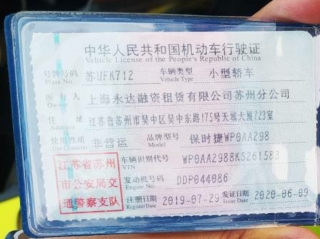 中华人民共和国机动车行驶证
Vehicle License of the People's Republic of China
号牌号码 苏UFK712 车辆类型 小型轿车
Vehicle Type
所有人 上海永达融资租赁有限公司苏州分公司
江苏省苏州市吴中区吴中东路175号天域大厦723室
非营运 品牌型号 保时捷WP0AA298
Model
江苏省苏州
市公安局交
通警察支队
车辆识别代号 WP0AA2988KS261583
VIN
发动机号码 DDP044086
Engine No.
注册日期 2019-07-29 发证日期 2020-06-09
Register Date Issue Date